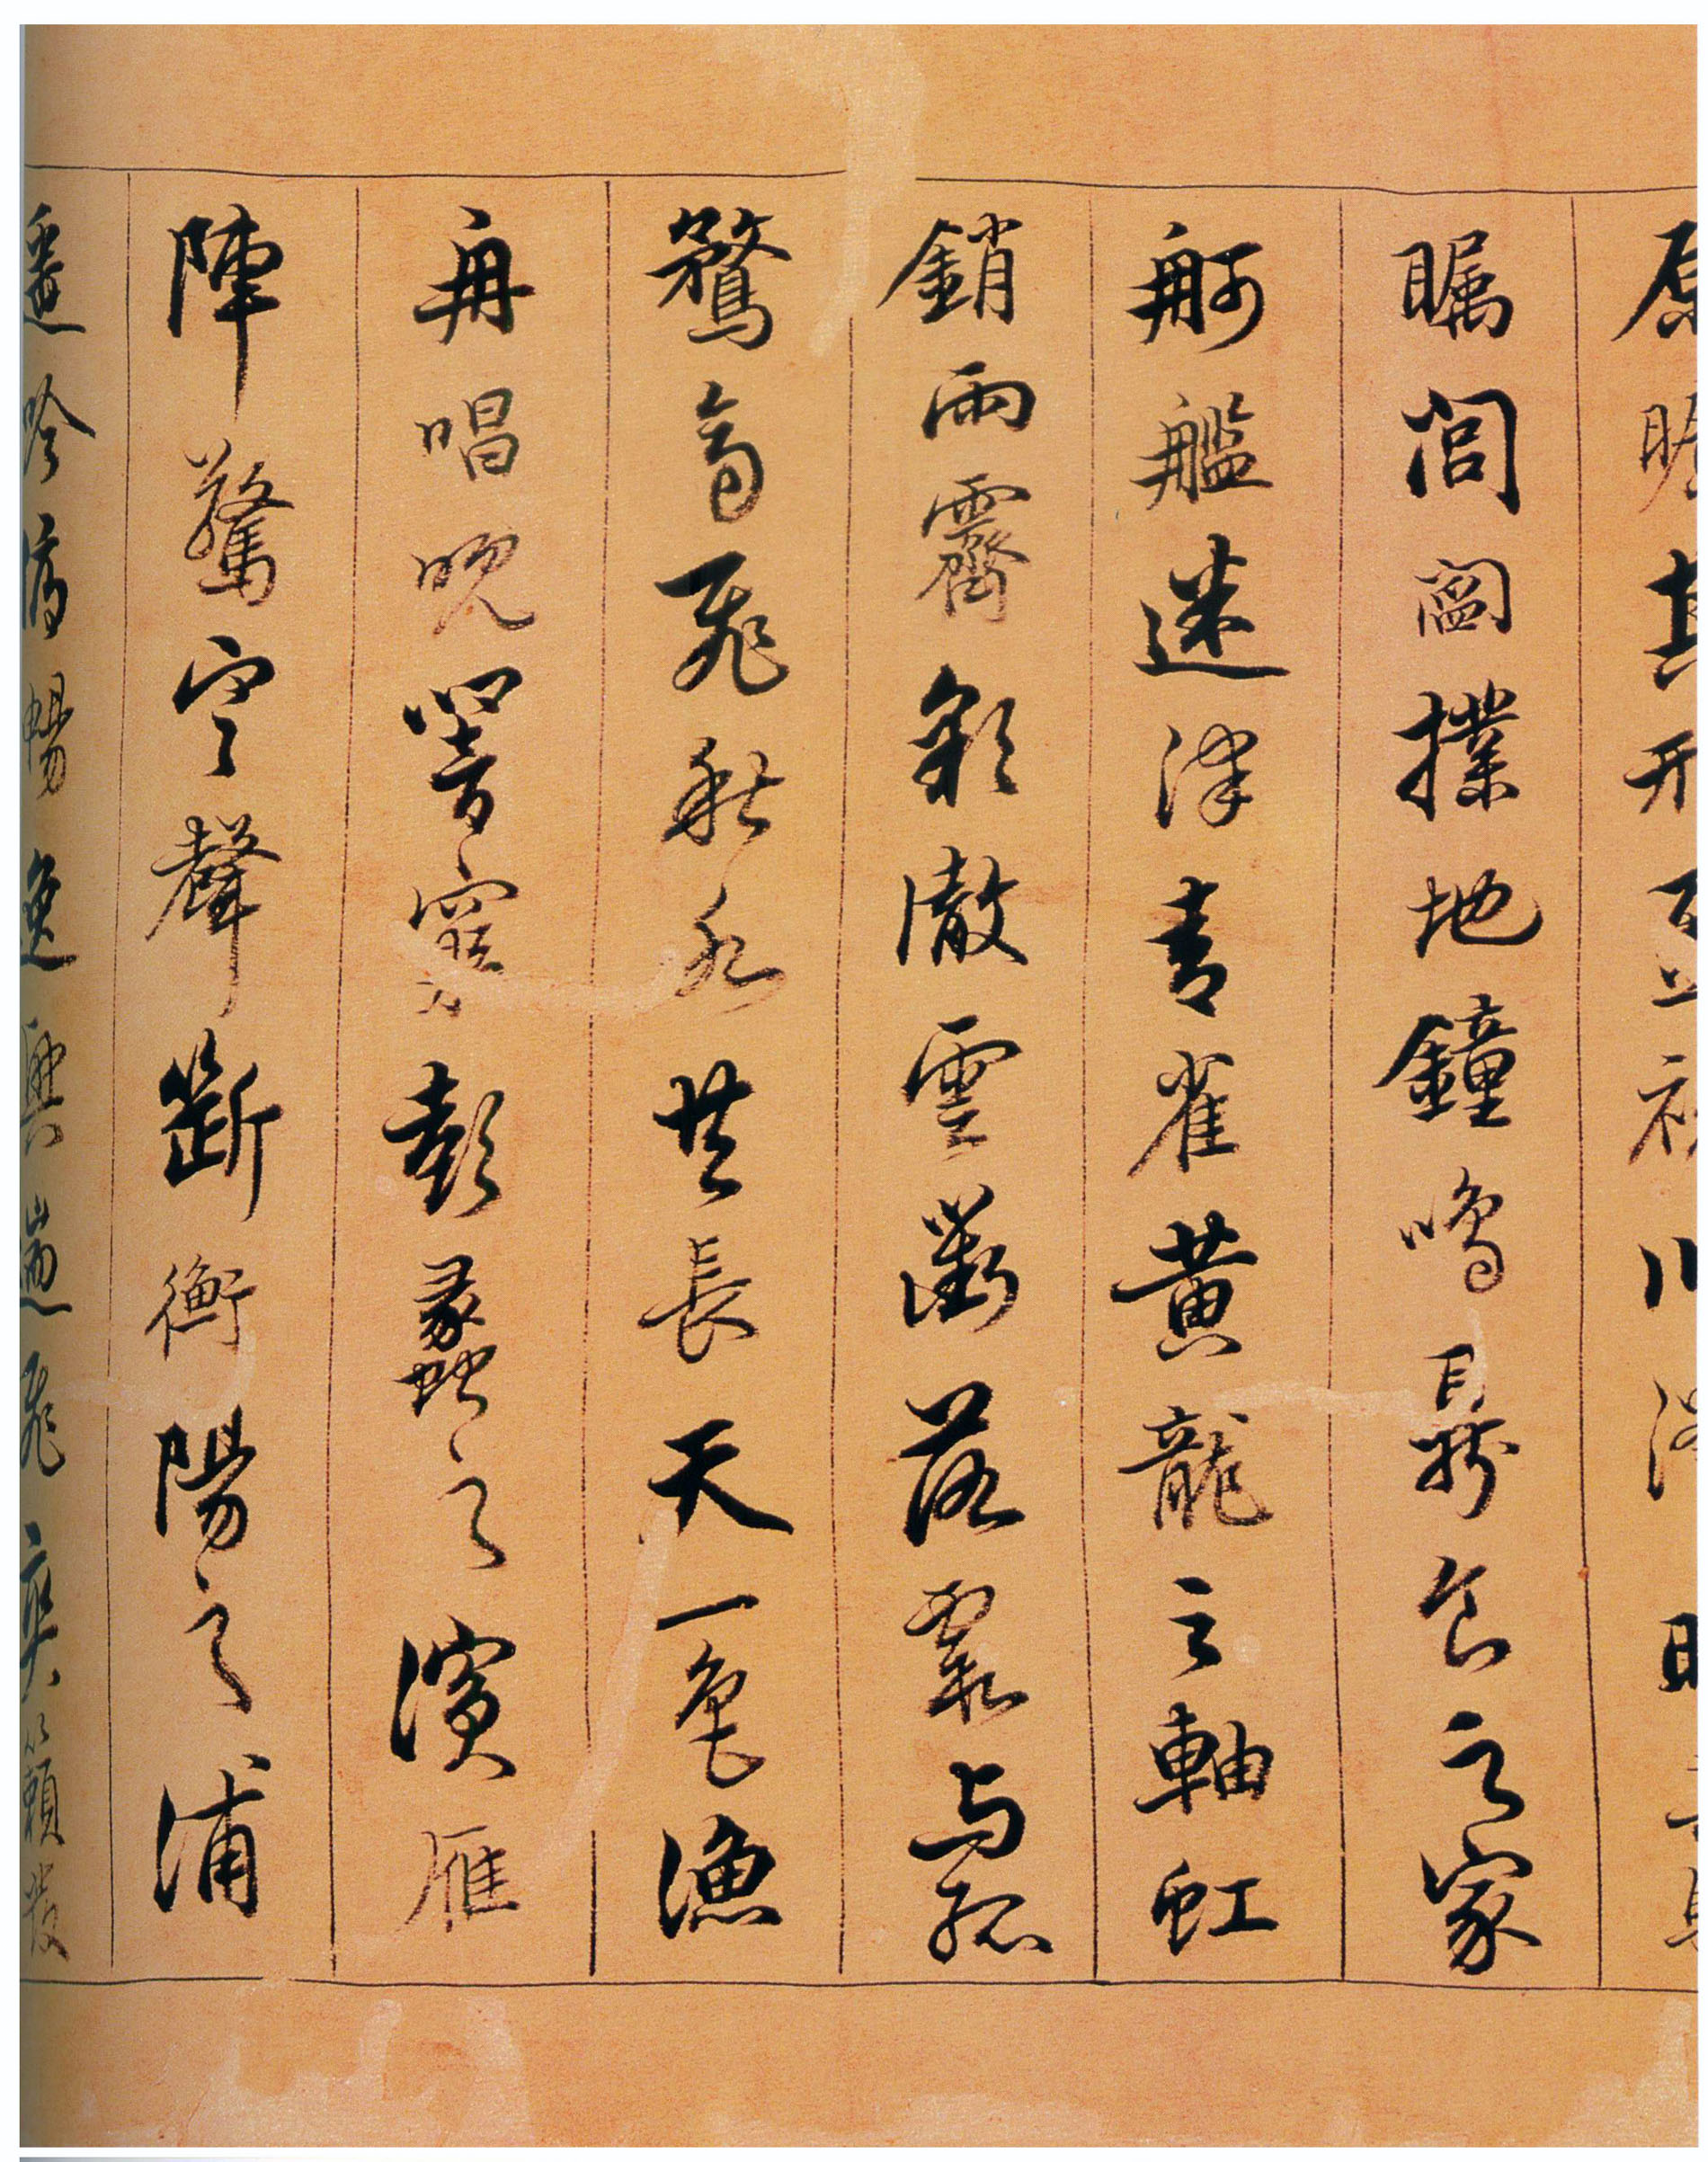 原其視川
瞩閭閻撲地鐘鳴鼎食之家
舸艦迷津青雀黄龍之軸虹
銷雨霽彩徹雲衢落霞与孤
鶩齊飛秋水共長天一色漁
舟唱晚響窮彭蠡之濱雁
陣驚寒聲斷衡陽之浦
遥吟俯暢逸興遄飛爽籟發